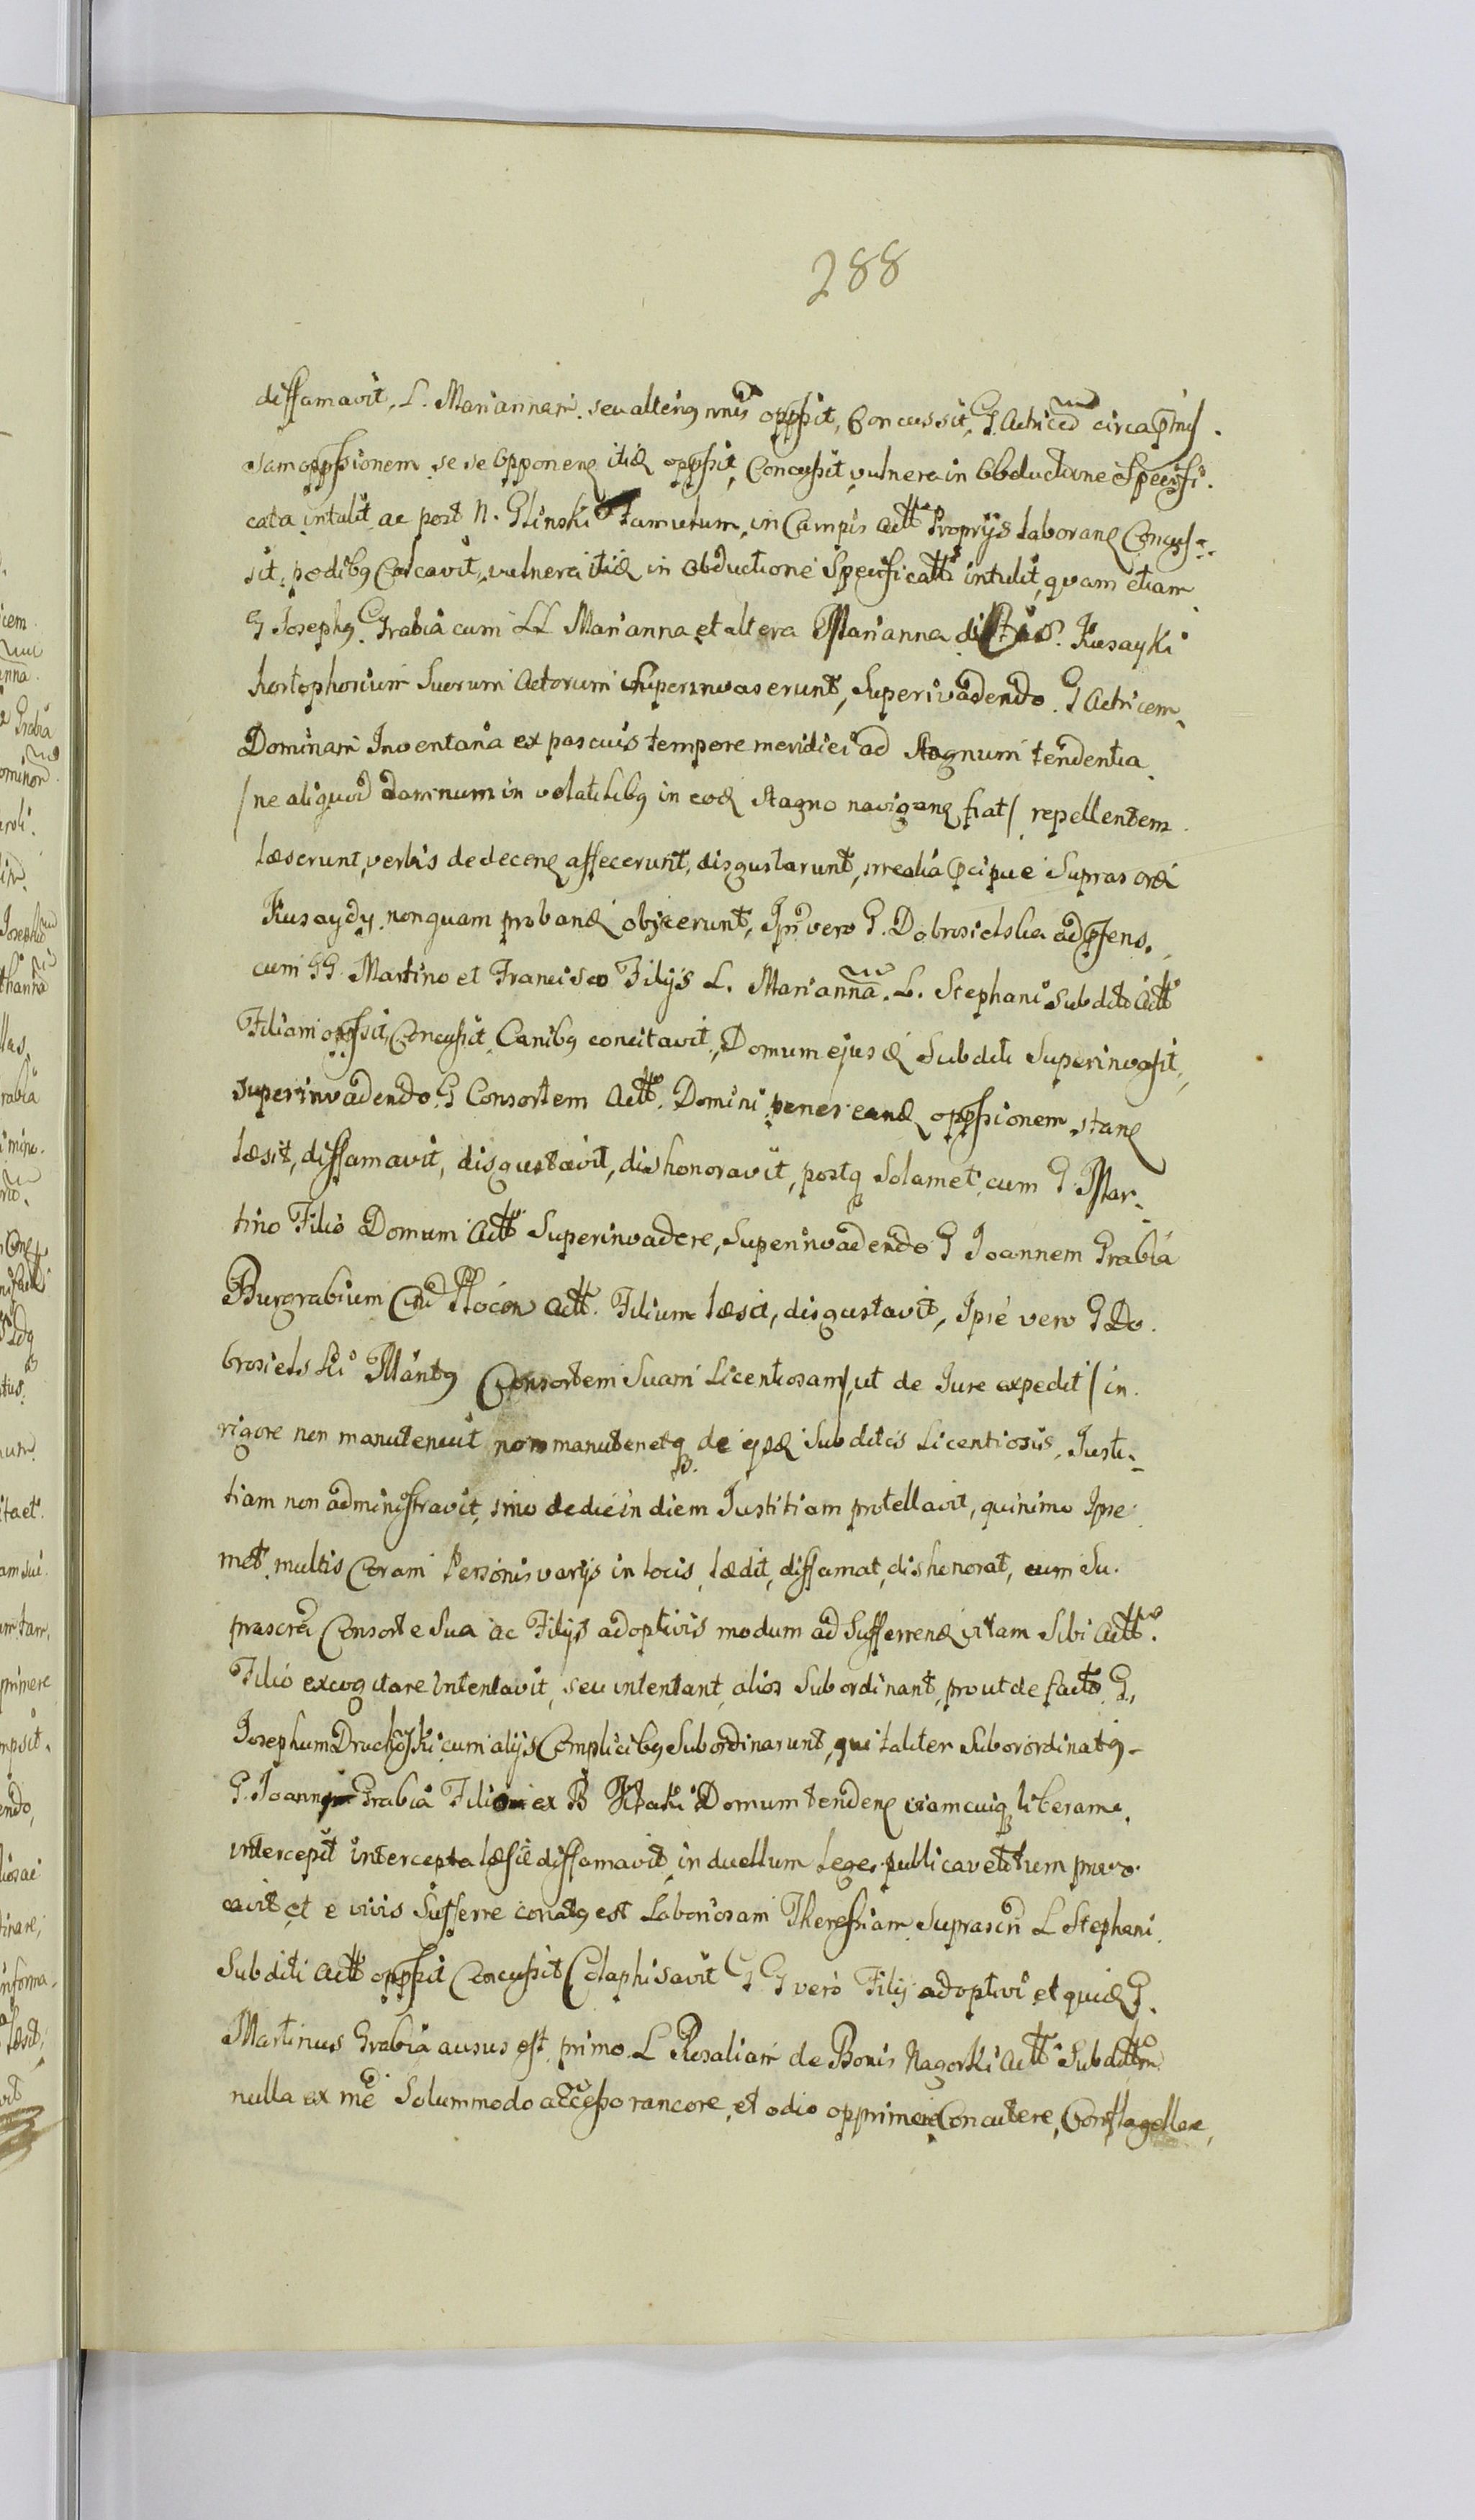 288
diffamavit, L. Mariannam seu alterig nnis oppsit, Concussit, G. Actricem circa
sam oppssionem se se opponen itid oppsit, Concussit, vulnera in Obductione Specifi-
cata intulit ac post N. Glinski Famulum in Campis Actt Proprijs laboran Concus-
sit, pedibg Calcavit, vulnera itid in Obductione Specificatti intulit, quam etiam
G Josephg Grabia cum LL Marianna et altera Marianna Kusayki
hortophorium Suorum Actorum superinvaserunt, Superivadendo G Actricem
Dominam Inventaria ex pascuis tempore meridiei ad Stagnum tendentia
/ne aliquod damnum in volatilibg in eod Stagno navigan fiat/ repellentem
læserunt, verbis dedecen affecerunt, disgustarunt, irrealia pcipue Supras
Kusaydy nonquam proband objecerunt, Ipa vero G. Dobrosielska
cum GG Martino et Francisco Filijs L. Marianna L. Stephani Subditi Actt
Filiam oppsit, Concussit, Canibg concitavit, Domum ejusd Subditi Superinvasit,
superinvadendo G Consortem Actt. Domini penes eand oppssionem stan
læsit, diffamavit, disgustavit, dishonoravit, postq Solamet cum G Mar-
tino Filio Domum Actt Superinvadere, Superinvadendo G Joannem Grabia
Burgrabium Plocen Actt. Filium læsit, disgustavit, Ipse vero G Do-
brosielski Maritg Consortem Suam Licentiosam /ut de Jure expedit/ in
rigore non manutenuit non manutenetq de ijsd Subditis Licentiosis, Justi-
tiam non administravit, imo de die in diem Justitiam protellavit, quinimo Ipse
met multis Coram Personis varijs in locis, lædit, diffamat, dishonorat, cum Su-
prascra Consorte Sua ac Filijs adoptivis modum ad Sufferend vitam Sibi Actt.
Filio excogitare intentavit, seu intentant, alios Subordinant, prout de facto G.
Josephum cum alijs Complicibg Subordinarunt, qui taliter Suborordinatg
G. Joann Grabia Filio ex B Domum tenden viam cuiq liberam
intercepit intercepta læsit diffamavit, in duellum Lege publica vetitum provo-
cavit et e vivis Sufferre conatg est Laboriosam Theressiam Suprascri L Stephani
Subditi Actt oppsit Concussit Colaphisavit GG vero Filij adoptivi et quid G.
Martinus Grabia ausus est primo L Rosaliam de Bonis Nagorki Actt Subdittm
nulla ex me Solummodo accesso rancore, et odio opprimere Concutere, Conflagellare,